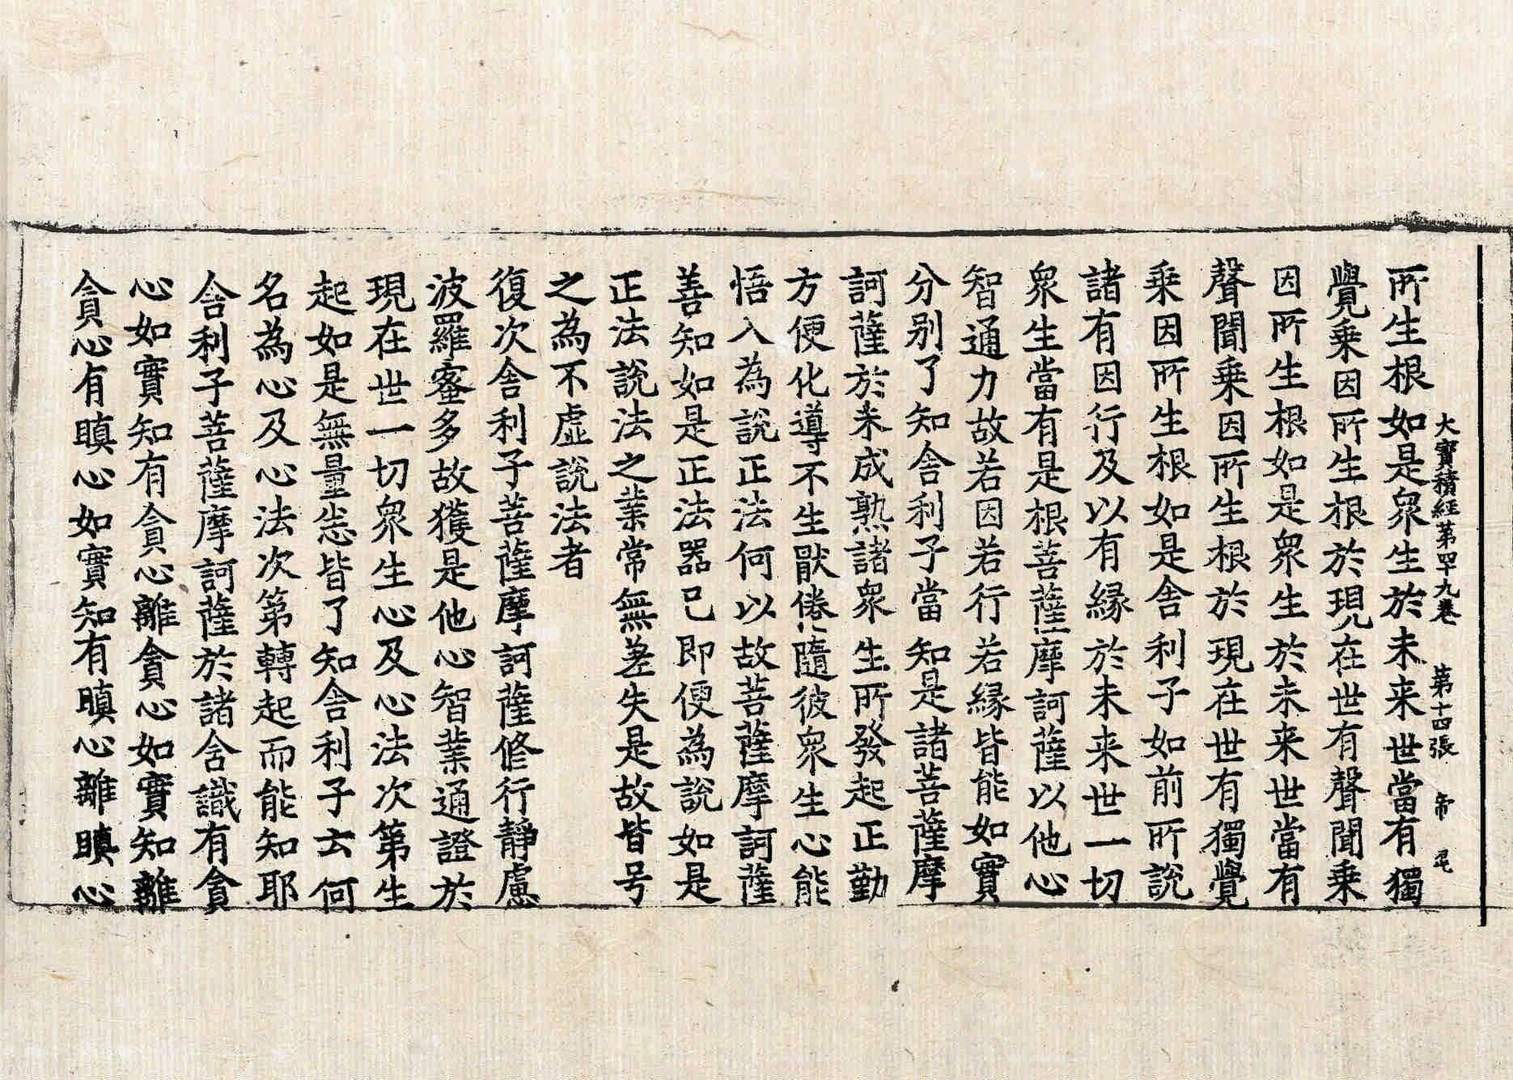 大寶積經第四十九卷 第十四張 帝
所生根如是衆生於未来世當有獨
覺乗因所生根於現在世有聲聞乗
因所生根如是衆生於未来世當有
聲聞乗因所生根於現在世有獨覺
乗因所生根如是舎利子如前所說
諸有因行及以有緣於未来世一切
衆生當有是根菩薩摩訶薩以他心
智通力故若因若行若緣皆能如實
分别了知舎利子當知是諸菩薩摩
訶薩於未成熟諸衆生所發起正勤
方便化導不生猒倦隨彼衆生心能
悟入為說正法何以故菩薩摩訶薩
善知如是正法器已即便為說如是
正法說法之業常無差失是故皆号
之為不虚說法者
復次舎利子菩薩摩訶薩修行靜慮
波羅蜜多故獲是他心智業通證於
現在世一切衆生心及心法次第生
起如是無量㤀皆了知舎利子云何
名為心及心法次第轉起而能知耶
舎利子菩薩摩訶薩於諸含識有貪
心如實知有貪心離貪心如實知離
貪心有瞋心如實知有瞋心離瞋心